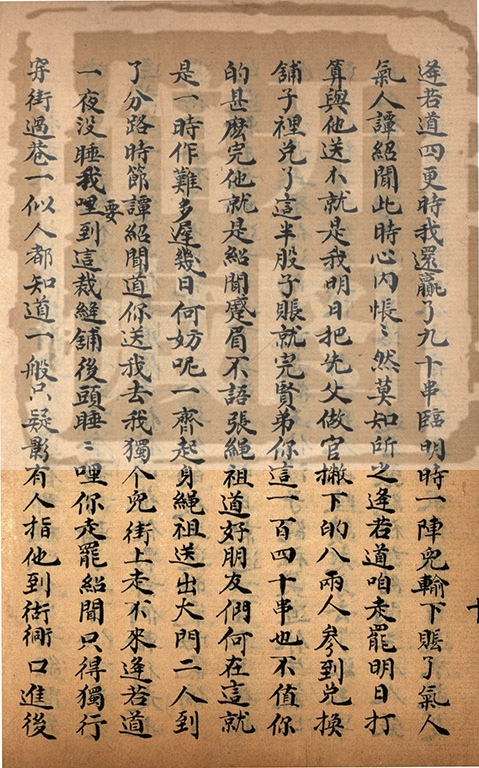 逄若道四更時我還贏了九十串臨明時一陣兒輸下賬了氣人
氣人譚紹聞此時心內悵〻然莫知所之逄若道咱走罷明日打
算與他送不就是我明日把先父做官撇下的八兩人參到兌換
舖子裡兌了這半股子賬就完賢弟你這一百四十串也不值你
的甚麽完他就是紹聞蹙眉不語張繩祖道好朋友們何在這就
是一時作難多遲幾日何妨呢一齊起身繩祖送出大門二人到
了分路時節譚紹聞道你送我去我獨个兒街上走不來逄若道
一夜没睡我要哩到這裁縫舖後頭睡〻哩你走罷紹聞只得獨行
穿街過巷一似人都知道一般只疑影有人指他到衚衕口進後